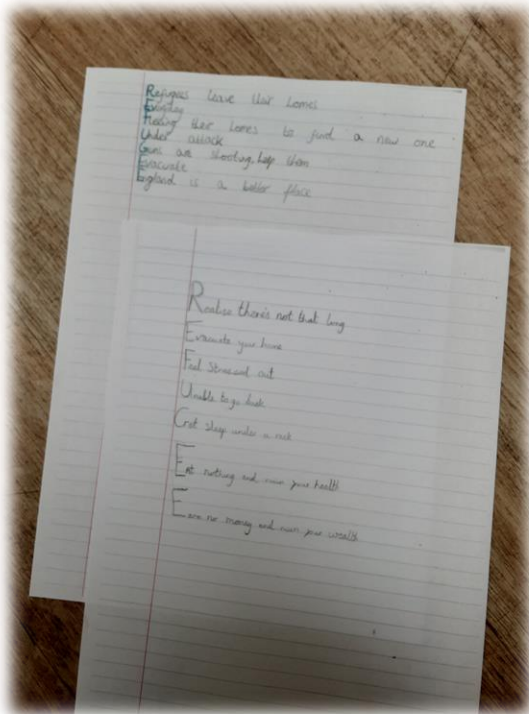 Refugees leave their homes
Everyday
Fleeing their homes to find a new one
Under attack
Guns are shooting, help them
Evacuate
England is a better place
Realise there's not that long
Evacuate your home
Feel stressed out
Unable to go back
Got sleep under a rock
Eat nothing and ruin your health
Earn no money and ruin your wealth